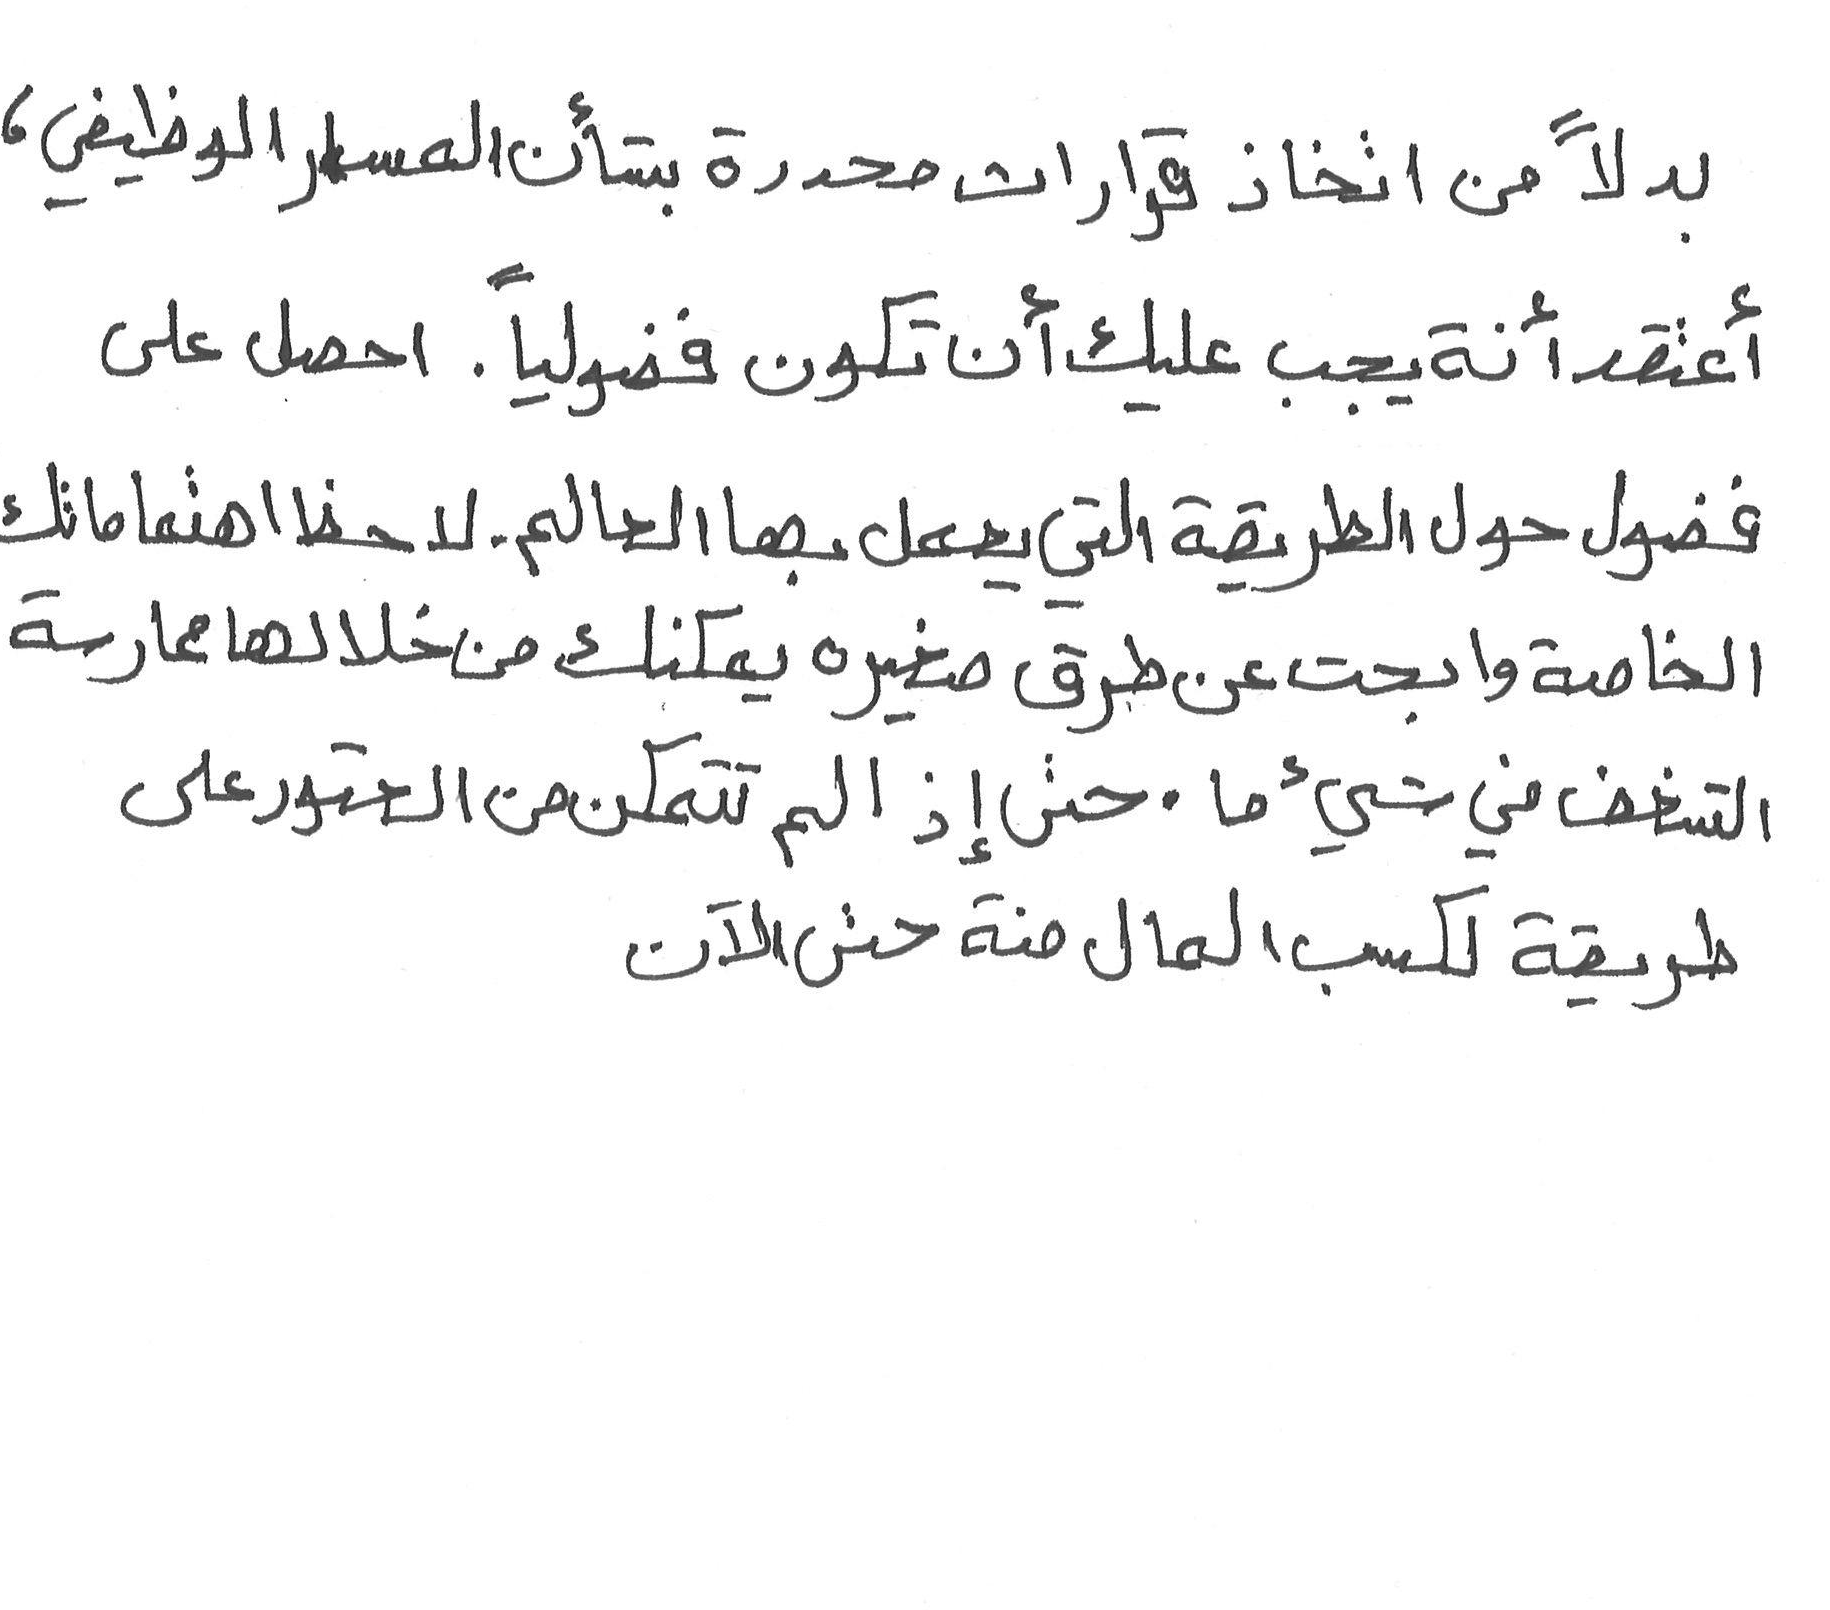 بدلاً من اتخاذ قرارات محددة بشأن المسار الوظيفي،
أعتقد أنة يجب عليك أن تكون فضولياً. احصل على
فضول حول الطريقة التي يعمل بها العالم. لاحظ اهتماماتك
الخاصة وابحث عن طرق صغيره يمكنك من خلالها ممارسة
الشغف في شيء ما. حتى إذا لم تتمكن من العثور على
طريقة لكسب المال منة حتى الآن